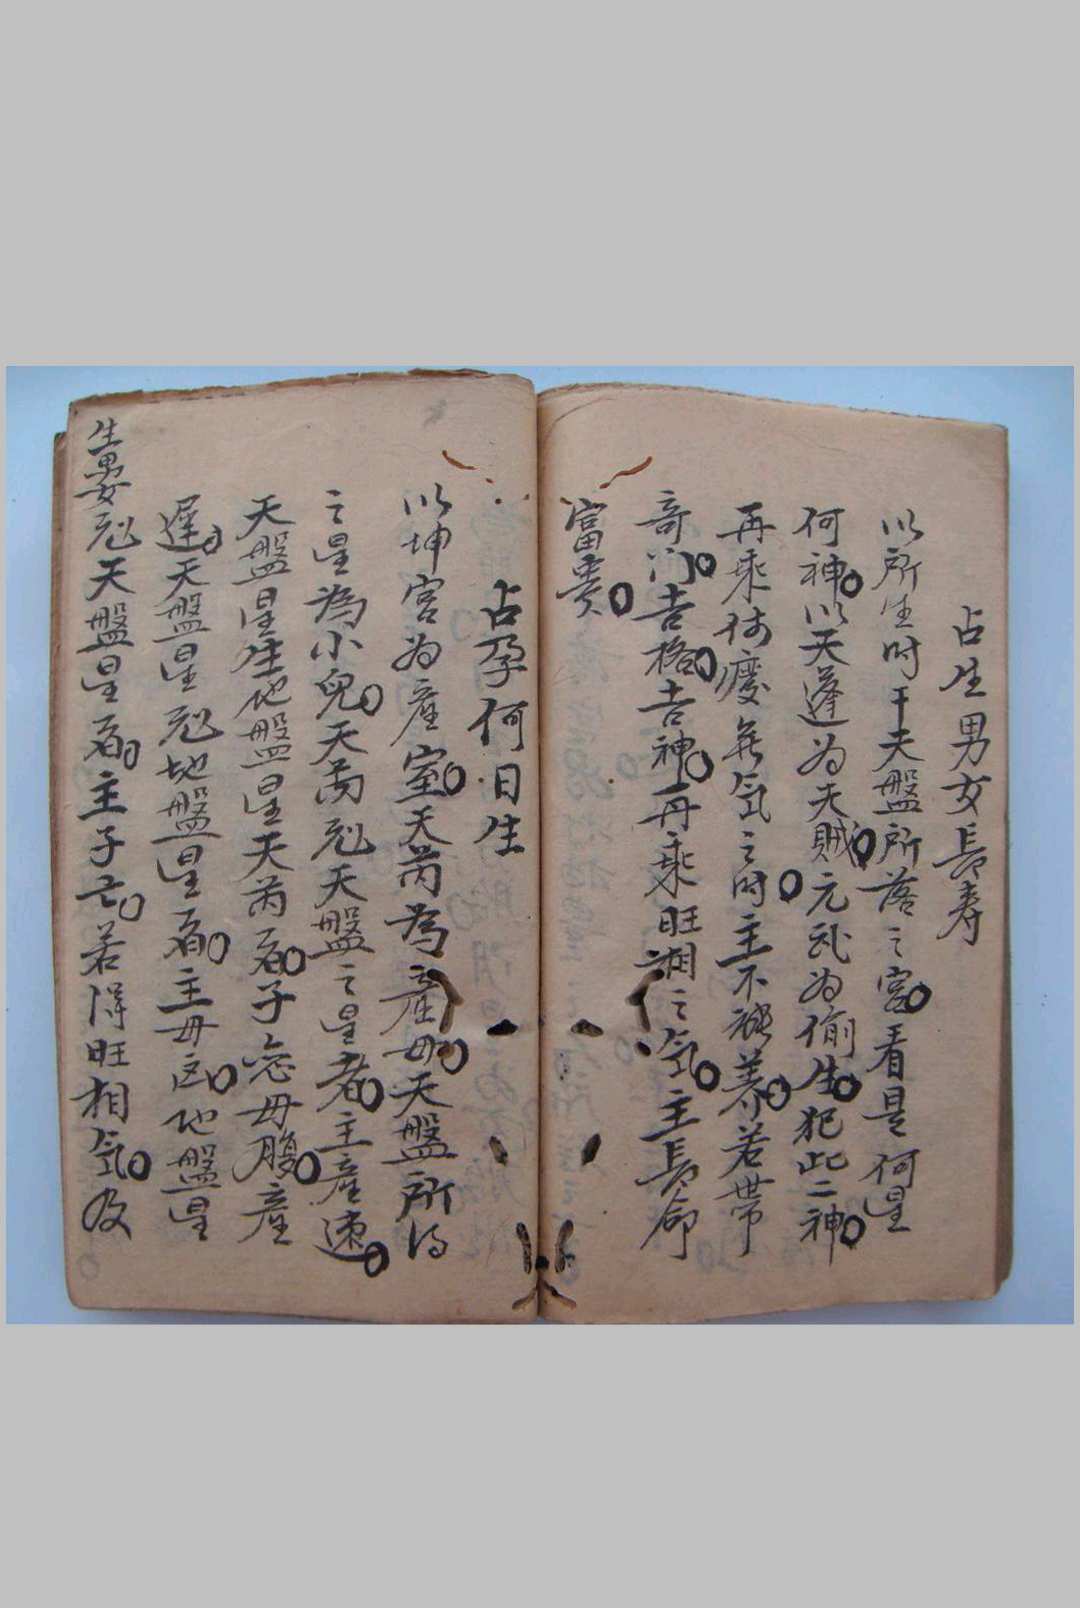 占生男女長寿
以所生時干天盤所落之宮看是何星
何神以天蓬为天賊元武为偷生犯此二神
再乘休廢無氣之時主不能养若带
奇门吉格吉神再乘旺相之氣主長命
富貴
占孕何日生
以坤宮为產室天芮為產母天盤所得
之星為小兒天芮尅天盤之星者主產速
天盤星生地盤星天芮者子恋母腹產
遲天盤星尅地盤星者主母凶地盤星
尅天盤星者主子亡若得旺相氣及
生男女